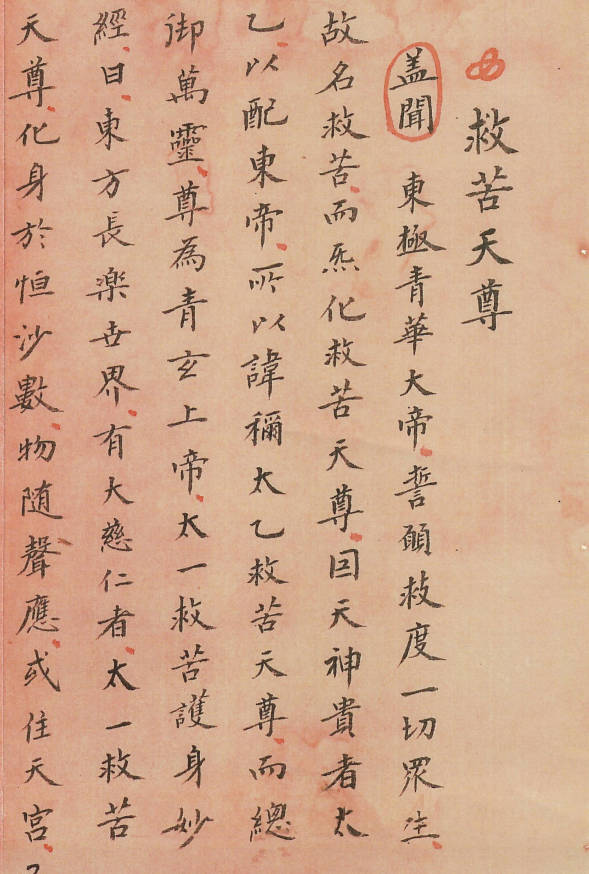 救苦天尊
盖聞 東極青華大帝誓願救度一切眾生
故名救苦而炁化救苦天尊回天神貴者太
乙以配東帝所以諱稱太乙救苦天尊而總
御萬靈尊為青玄上帝太一救苦護身妙
經曰東方長楽世界有大慈仁者太一救苦
天尊化身於恒沙數物随聲應或住天宮